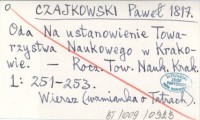 CZAJKOWSKI Paweł 1817.
Oda Na ustanowienie Towa-
rzystwa Naukowego w Krako-
wie. — Rocz. Tow. Nauk. Krak.
1: 251-253.
Wiersz (wzmianka o Tatrach).
BJ 1009